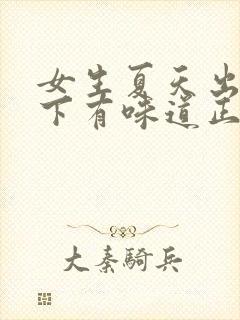 女生夏天出
下有味道正
大秦騎兵